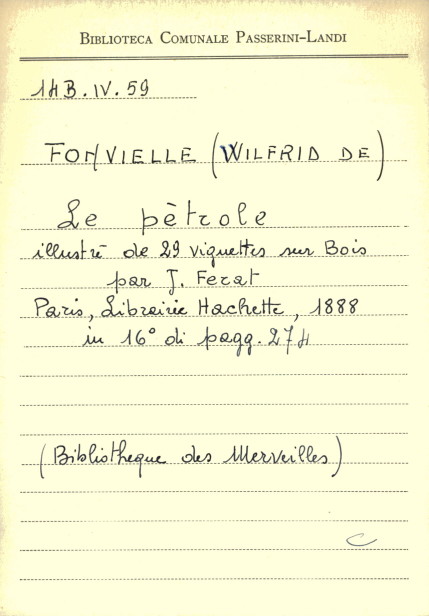 BIBLIOTECA COMUNALE PASSERINI-LANDI
14B.IV.59
FONVIELLE (WILFRID DE)
Le pètrole
illustrè de 29 vignettes sur Bois
par J. Ferat
Paris, Librairie Hachette, 1888
in 16° di pagg. 274
(Bibliotheque des Merveilles)
C